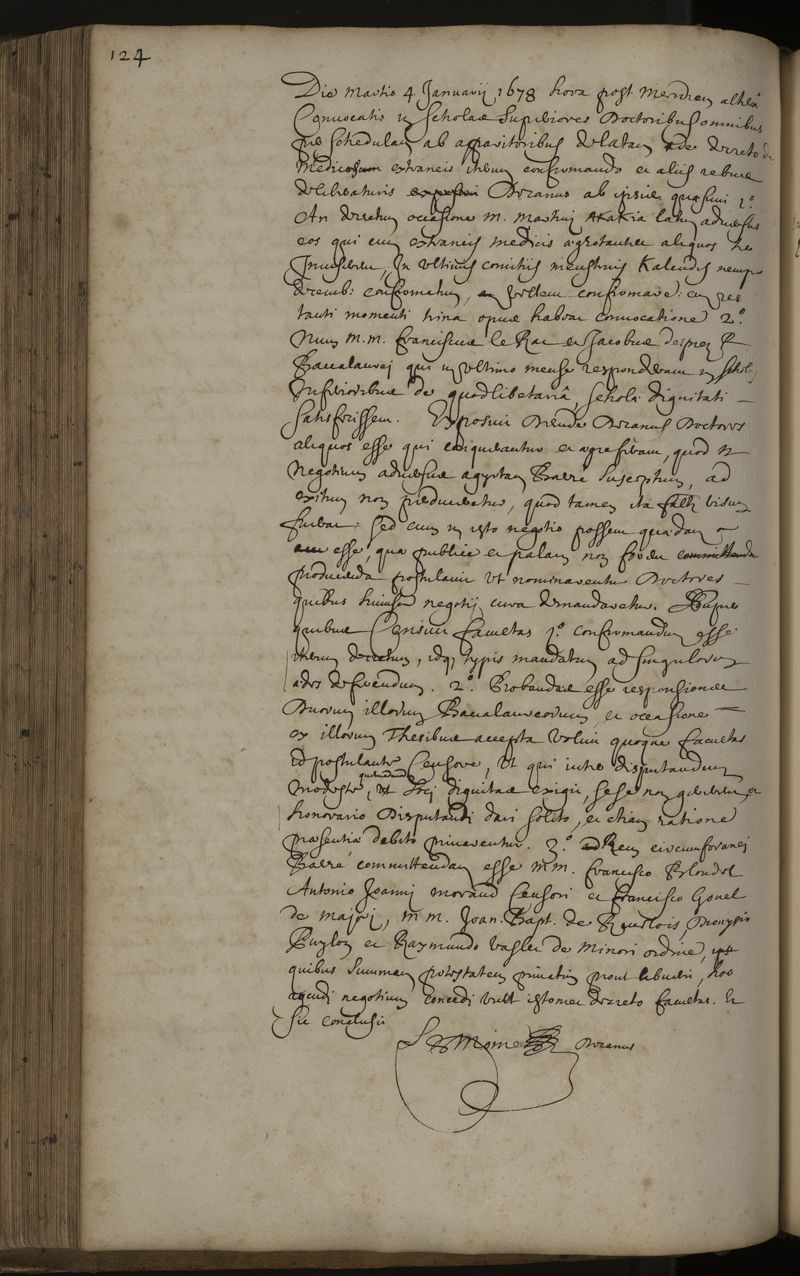 124
Die martis 4 Januarij 1678 hora post meridiem altera
Convocatis in Scholas Superiores Doctoribus omnibus
per schedulam ab apparitoribus delatam de decreto de
Medicis extraneis iterum confirmando et aliis rebus
deliberaturis Decanus ab ipsis quaesivi 1o.
An decretum occasione M. Martini Akakia latum adversus
eos qui cum extraneis medicis aegrotantes aliquos
inviserent, in ultimis comitiis menstruis Kalendis nempe
decemb: confirmatum, vellent confirmare: cum res
tanti momenti trina opus habeat convocatione 2o.
Num M.M. Franciscus le Rat et Jacobus desprez
Baccalaurei qui in ultimo mense responderunt in scholis
inferioribus de quodlibetaria, scholae dignitati
satisfecissent. Exposui deinde Decanus Doctores
aliquos esse qui conquerantur et aegre ferant, quod
negotium adversus agyrtam Barré susceptum, ad
exitum non perduceretur, quod tamen ita visum
fuerat: sed cum in isto negotio possent quaedam
esse, quae publice et palam non forent
producenda postulavi ut nominarentur Doctores
quibus huiusce negotij cura demandaretur. Super
quibus censuit facultas 1o. confirmandum esse
iterum decretum, idque typis mandatum ad singulorum
aedes deferendum. 2o. Probandas esse responsiones
Duorum illorum Baccalaureorum, et occasione
ex illorum Thesibus accepta voluit quoque facultas
id postulante Censore, ut qui inter disputandum
modeste, ut loci dignitas exigit, sese non gererent, et
honorario Disputanti dari solito, et etiam ratione
praesentiae debito privarentur. 3o. Rem circumforanei
Barré committendam esse M.M. Francisco Blondel
Antonio Joanni Morand Censori et Francisco Gouel
de majori, M.M. Joan. Bapt. de Rueelois, Dionysio
Puylon et Raymundo de Minori ordine,
quibus summam potestatem privatim prout libuerit, hoc
agendi negotium concedi vult istomet decreto facultas. Et
sic conclusi
Decanus